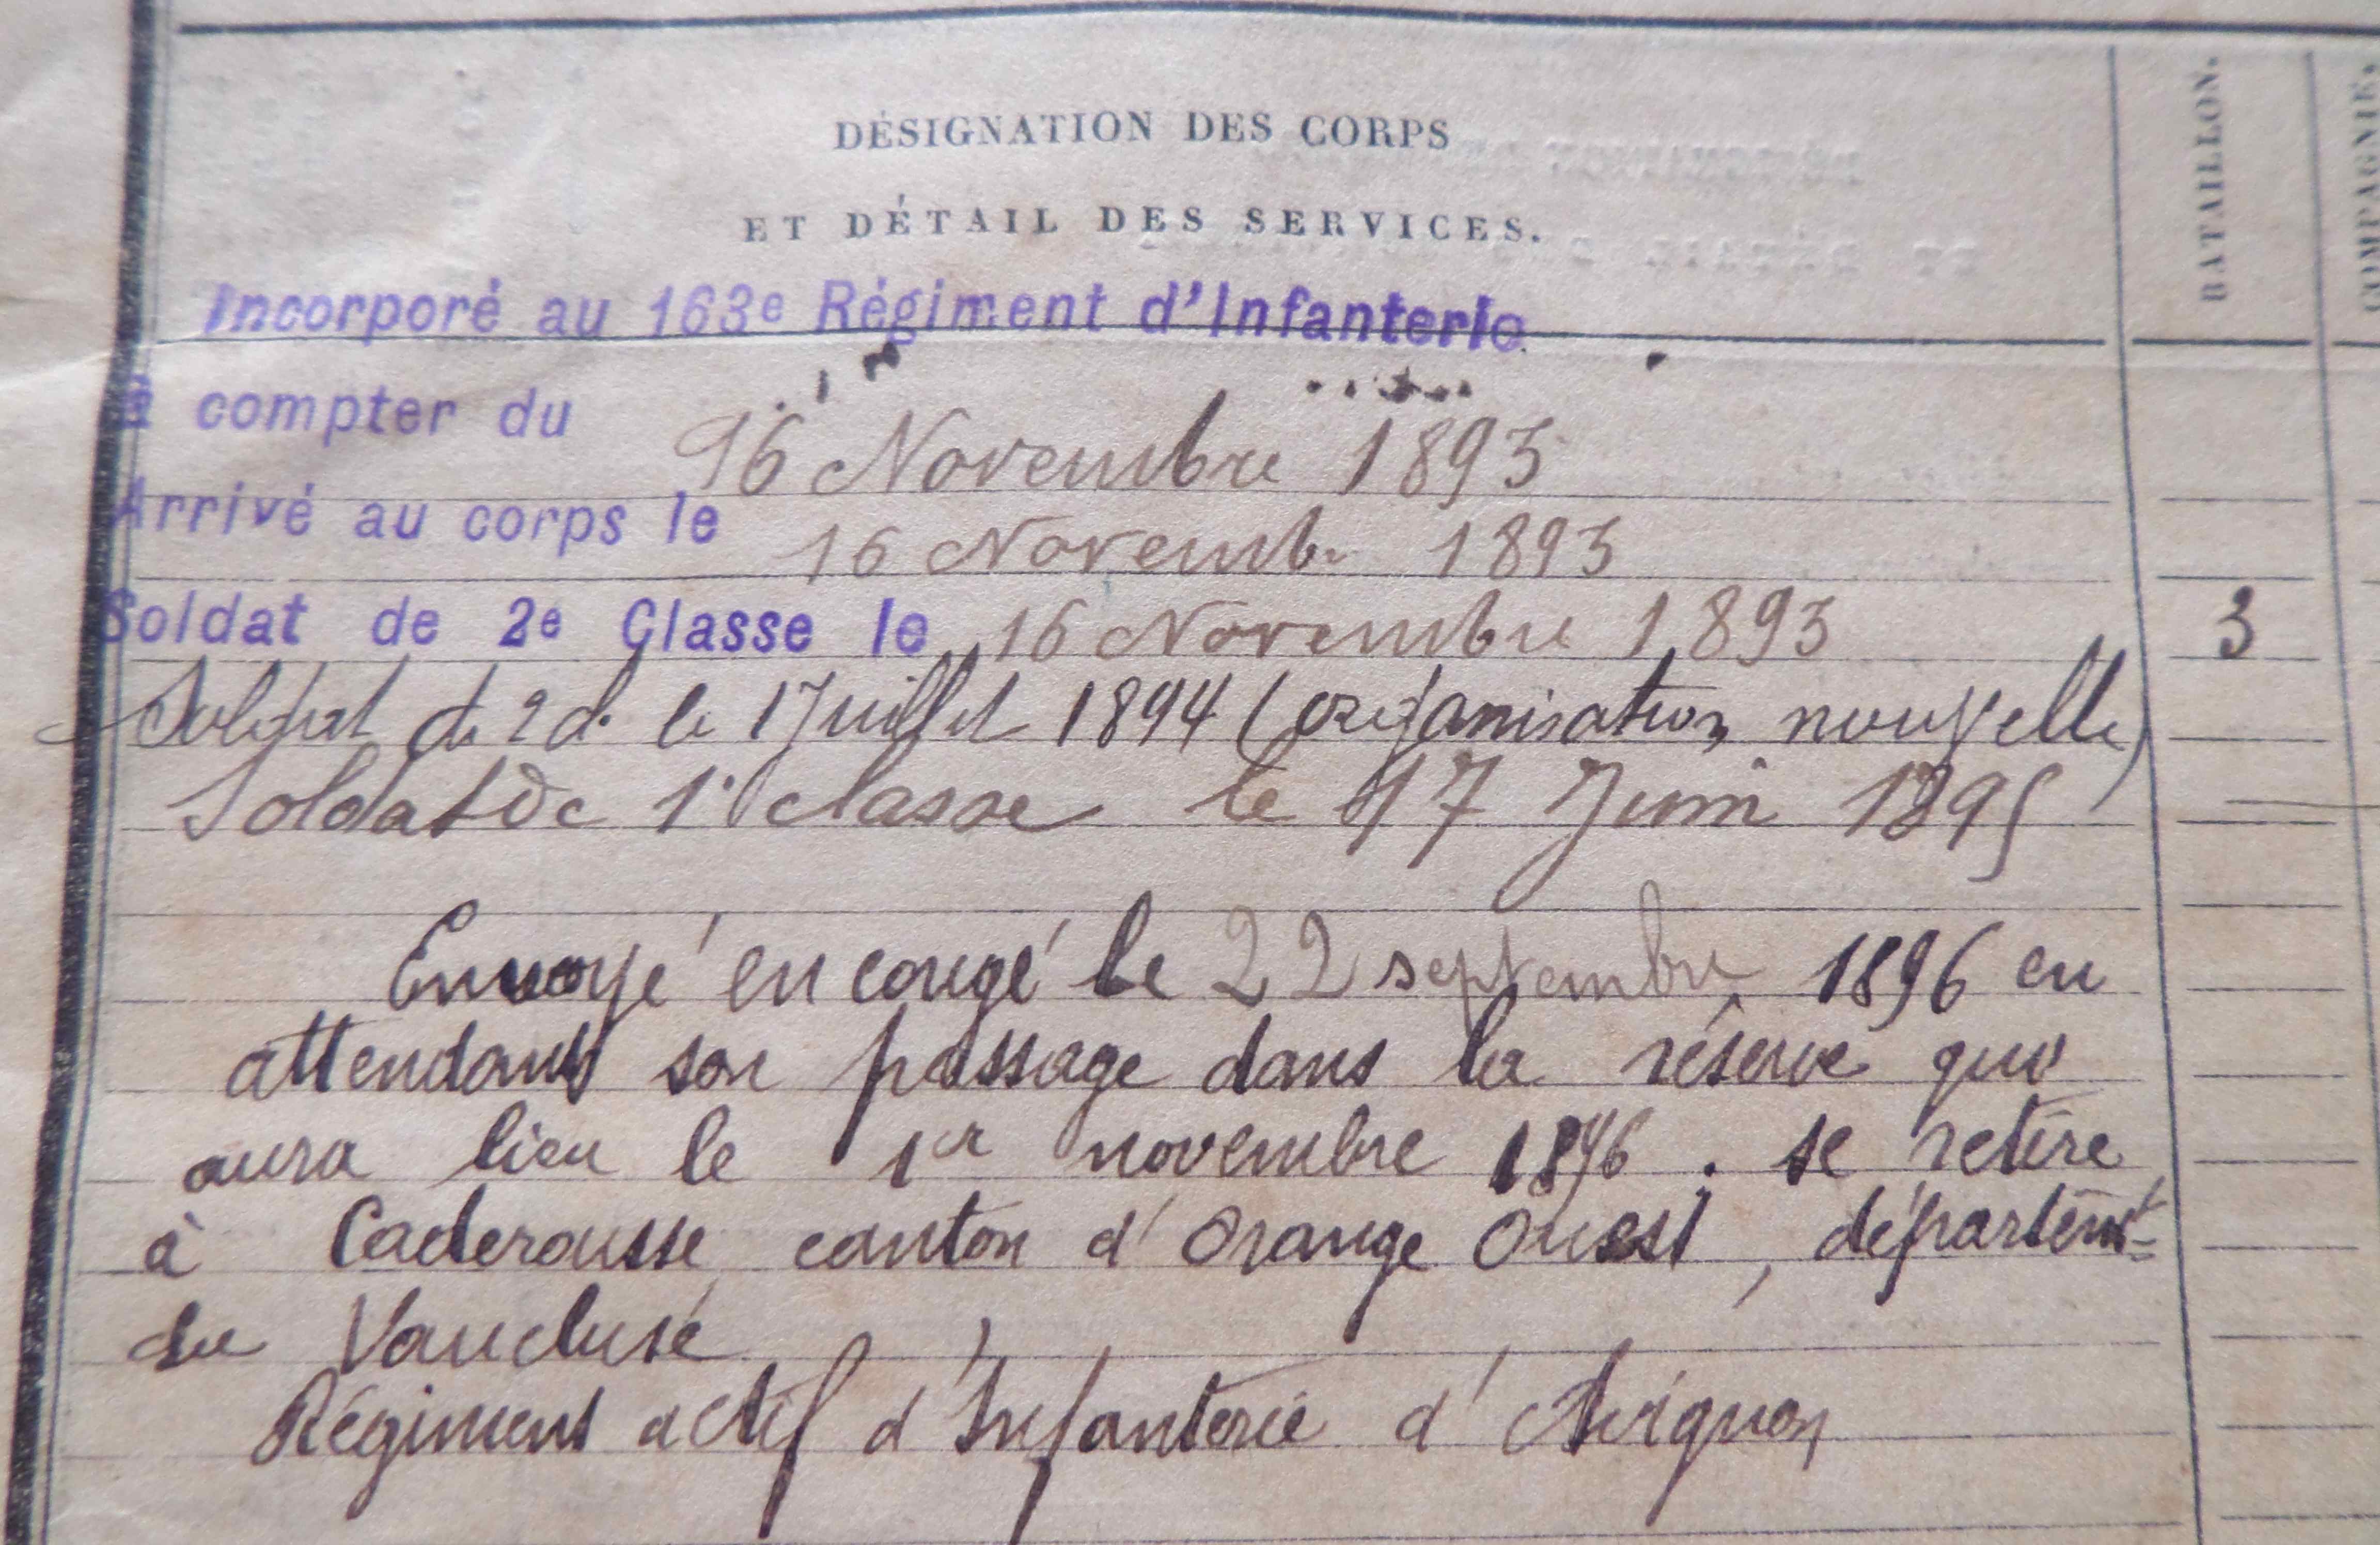 DÉSIGNATION DES CORPS
ET DÉTAIL DES SERVICES.
BATAILLON.
COMPAGNIE.
Incorporé au 163e Régiment d'Infanterie
à compter du 16 Novembre 1893
Arrivé au corps le 16 Novemb. 1893
Soldat de 2e Classe le 16 Novembre 1893 3
Soldat de 2 cl. le 1 Juillet 1894 (organisation nouvelle)
Soldat de 1e classe le 17 Juin 1895
Envoyé en congé le 22 septembre 1896 en
attendant son passage dans la réserve qui
aura lieu le 1er novembre 1896. se retire
à Caderousse canton d'Orange Ouest, départemt
du Vaucluse
Régiment actif d'Infanterie d'Avignon